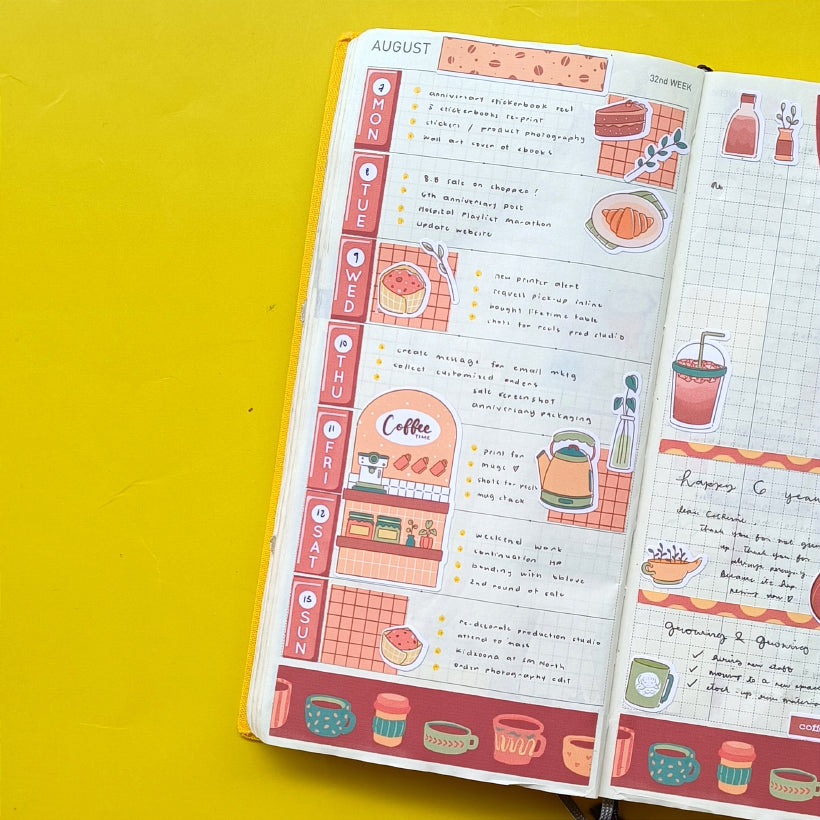 AUGUST
32nd WEEK
7
MON
anniversary stickerbook reel
5 stickerbooks re-print
stickers / product photography
wall art cover at ebooks
8
TUE
8.8 sale on shopee!
6th anniversary post
Hospital Playlist marathon
update website
9
WED
new printer alert
request pick-up inline
bought lifetime table
shots for reels prod studio
10
THU
create message for email mktg
collect customized orders
sale screenshot
anniversary packaging
11
FRI
Coffee
TIME
print for
mugs
shots for reels
mug stack
12
SAT
weekend work
continuation HP
bonding with bblove
2nd round of sale
13
SUN
re-decorate production studio
attend to mass
kidzoona at SM North
under photography edit
happy 6 year
dear Catherine
thank you for not
up. thank you for
always
Because it's
growing & glowing
hiring new staff
moving to a new space
stock-up raw materials
coff